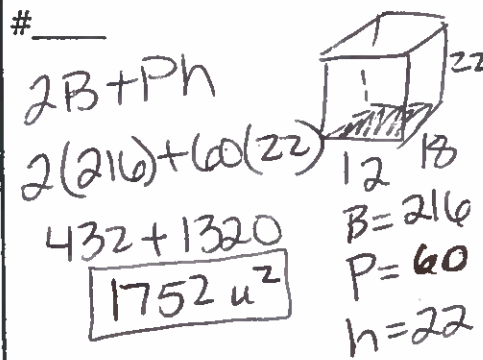 #____
2B+Ph
2(216)+60(22)
432+1320
1752 u²
22
18
12
B=216
P=60
h=22